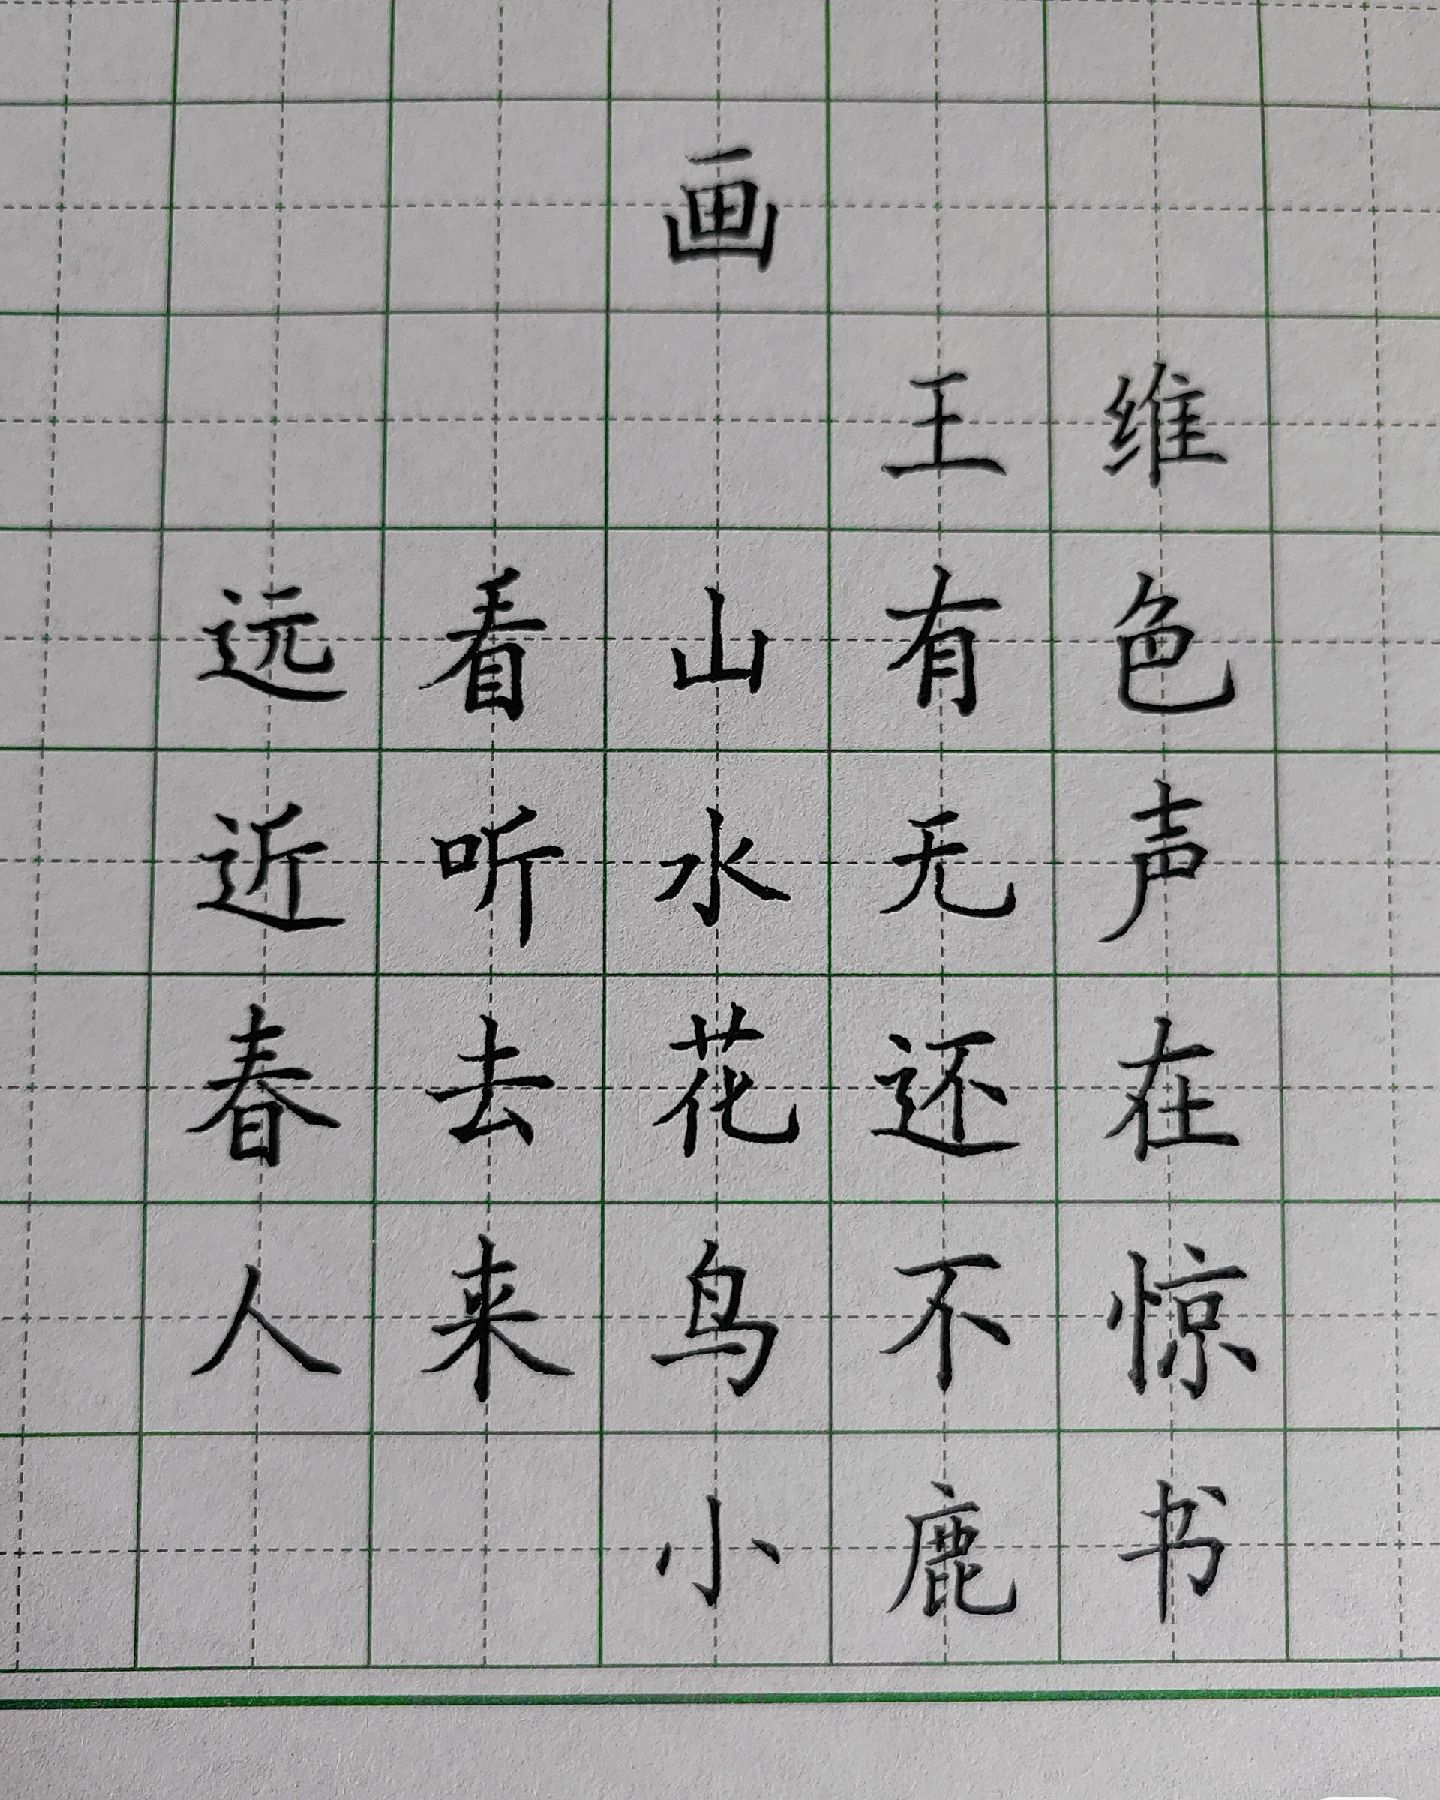 画
王维
远看山有色
近听水无声
春去花还在
人来鸟不惊
小鹿书